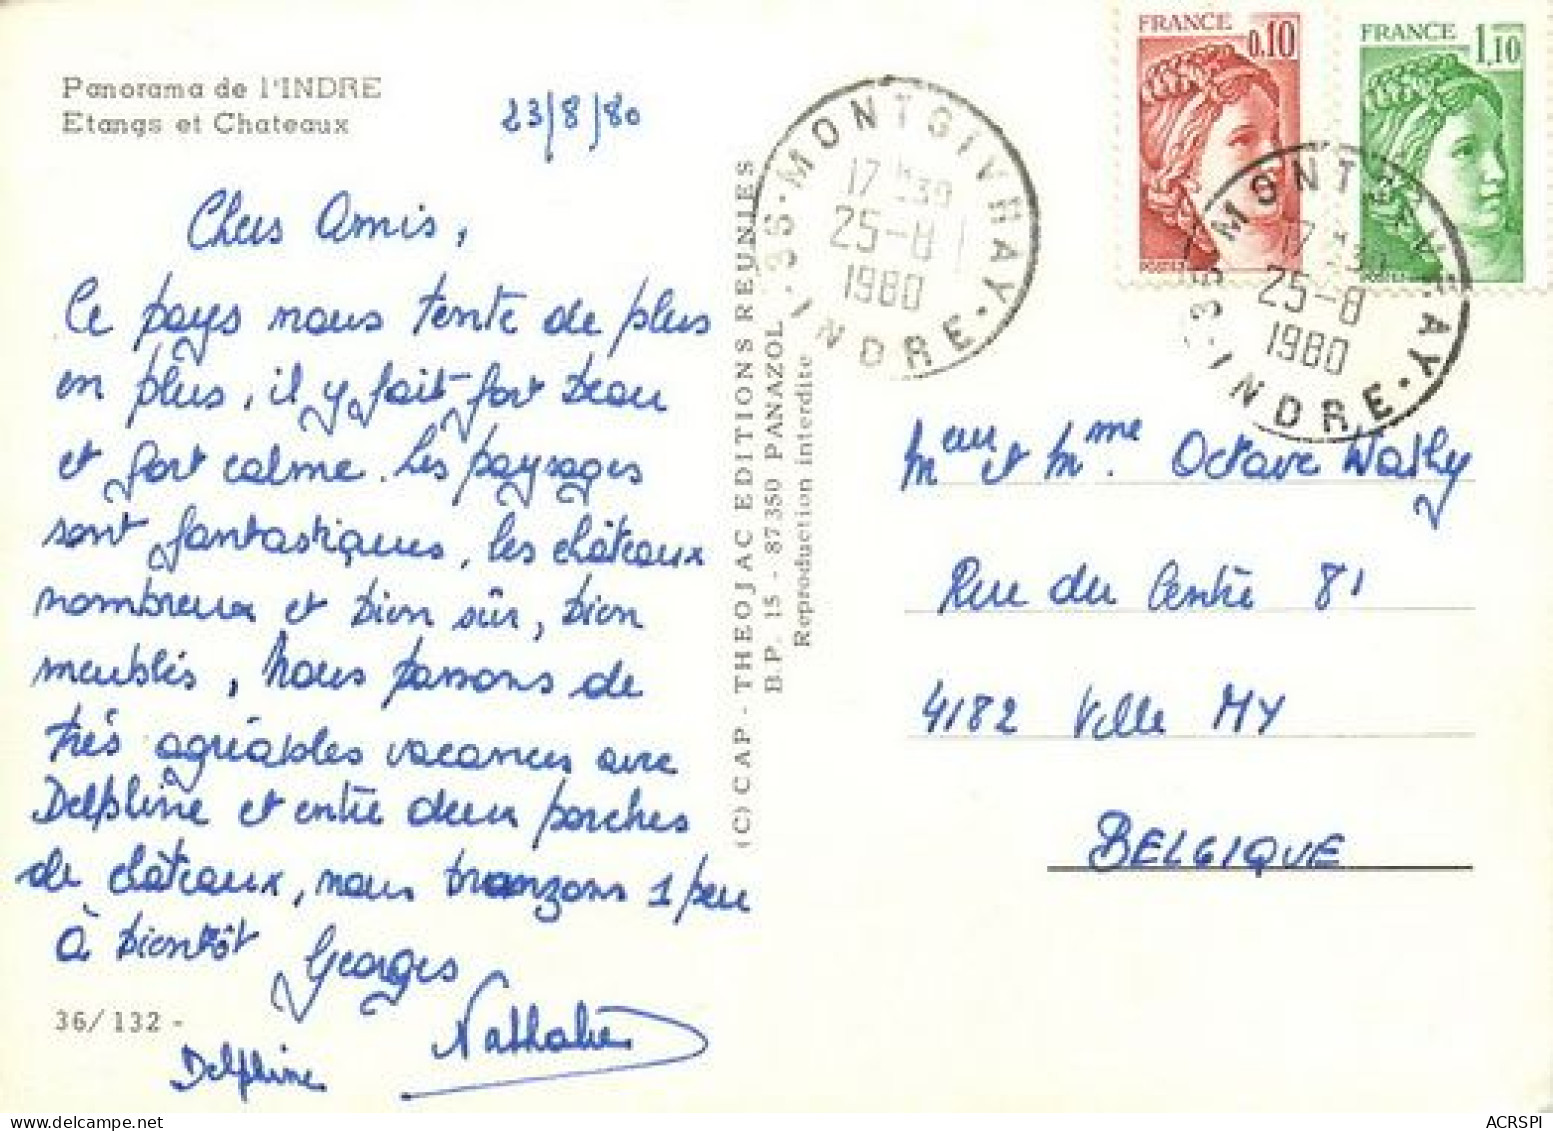 Panorama de l'INDRE
Etangs et Chateaux
23/8/80
Chers Amis,
Ce pays nous tente de plus
en plus, il y fait fort beau
et fort calme. Les paysages
sont fantastiques, les châteaux
nombreux et bien sûr, bien
meublés, Nous passons de
très agréables vacances avec
Delphine et entre deux porches
de châteaux, nous bronzons 1 peu
à bientôt Georges
Nathalie
Delphine
36/132 -
(C) CAP - THEOJAC EDITIONS REUNIES
B.P. 15 - 87350 PANAZOL
Reproduction interdite
36 - MONTGIVRAY - INDRE
17 H 30
25-8
1980
FRANCE 0,10
POSTES
FRANCE 1,10
36 - MONTGIVRAY - INDRE
17 H 30
25-8
1980
et Mme Octave
Rue du Centre 81
4182 Ville MY
BELGIQUE
ACRSPI